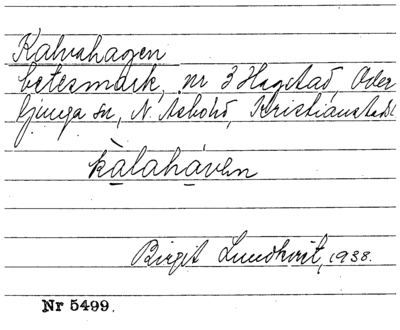 Kalvahagen
betesmark, nr 3 Hagstad, Oder
ljunga sn, N. Åsbohd, Kristianstads l
kàlahávën
Birgit Lundkvist, 1938.
Nr 5499.